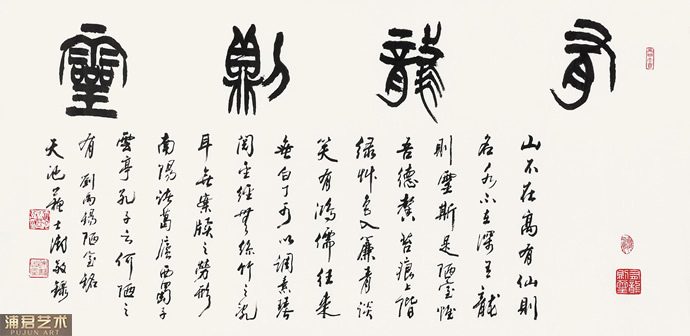 有龍則靈
山不在高有仙則
名水不在深有龍
則靈斯是陋室惟
吾德馨苔痕上階
綠艸色入簾青談
笑有鴻儒往來
無白丁可以調素琴
閱金經無絲竹之亂
耳無案牘之勞形
南陽諸葛廬西蜀子
雲亭孔子云何陋之
有 劉禹錫陋室銘
天池蘇士澍敬錄
浦君艺术
PUJUN ART